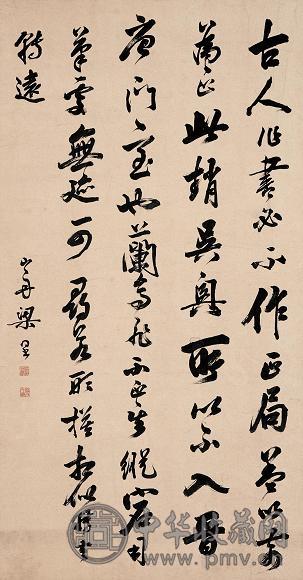 古人作書必不作正局蓋以奇
為正此趙吳興所以不入晉
唐門室也蘭亭非不正其縱宕用
筆處無迹可尋若形模相似轉去
轉遠
梁
中华收藏网
www.pmv.cn